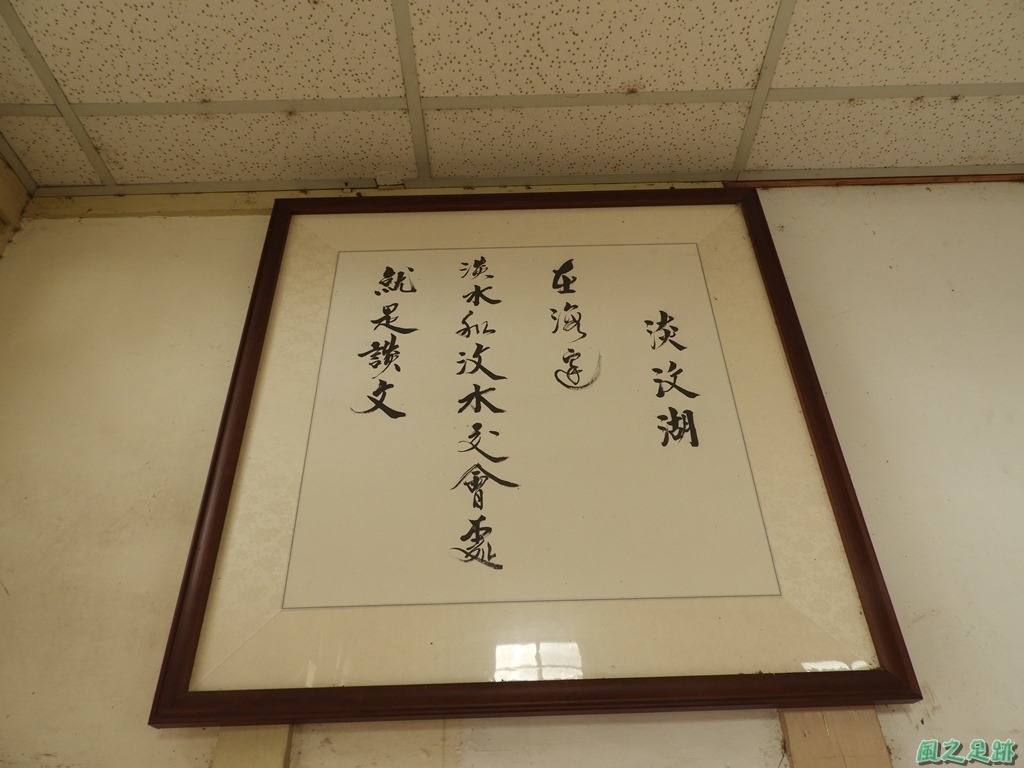 淡汶湖
在海邊
淡水和汶水交會處
就是讚文
風之足跡